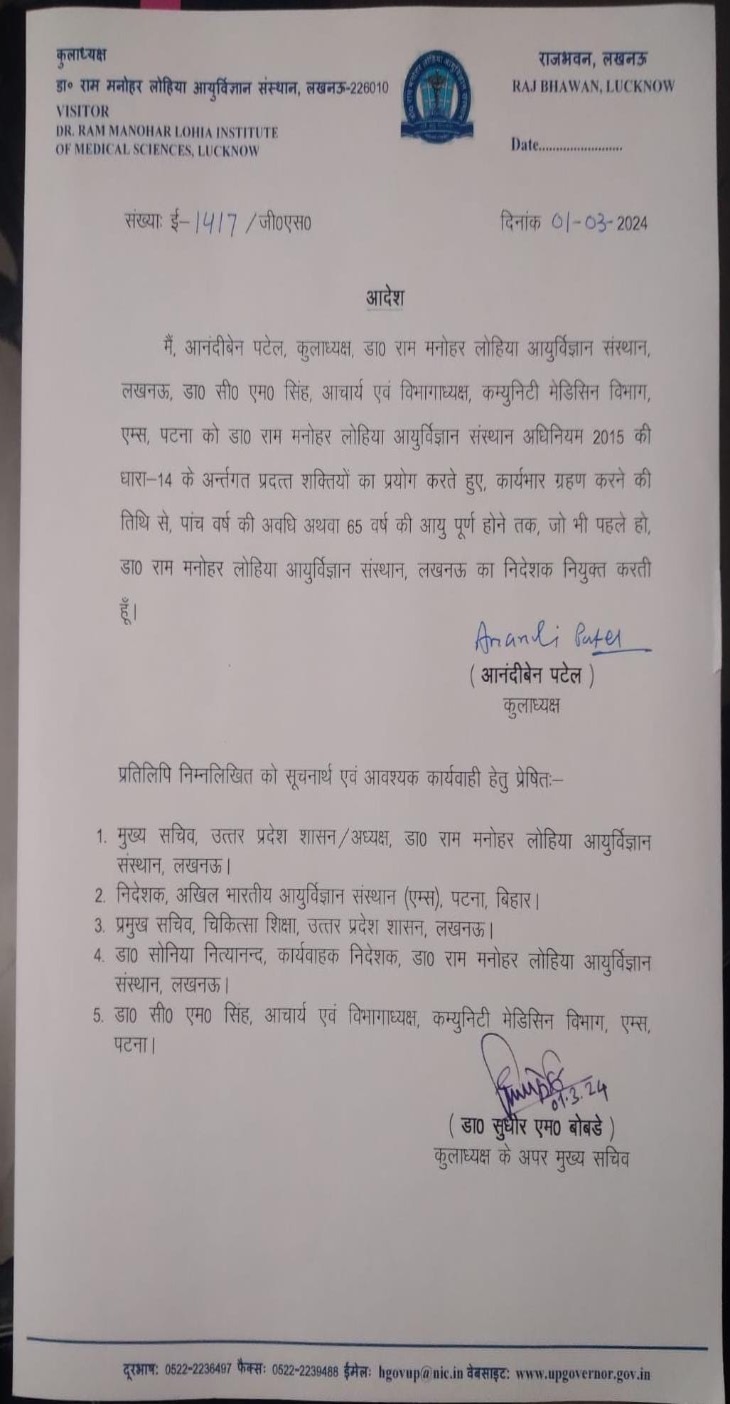 कुलाध्यक्ष
डा० राम मनोहर लोहिया आयुर्विज्ञान संस्थान, लखनऊ-226010
VISITOR
DR. RAM MANOHAR LOHIA INSTITUTE
OF MEDICAL SCIENCES, LUCKNOW
राजभवन, लखनऊ
RAJ BHAWAN, LUCKNOW
Date........................
संख्याः ई-1417/जी0एस0
दिनांक 01-03-2024
आदेश
मैं, आनंदीबेन पटेल, कुलाध्यक्ष, डा0 राम मनोहर लोहिया आयुर्विज्ञान संस्थान,
लखनऊ, डा0 सी0 एम0 सिंह, आचार्य एवं विभागाध्यक्ष, कम्युनिटी मेडिसिन विभाग,
एम्स, पटना को डा0 राम मनोहर लोहिया आयुर्विज्ञान संस्थान अधिनियम 2015 की
धारा-14 के अर्न्तगत प्रदत्त शक्तियों का प्रयोग करते हुए, कार्यभार ग्रहण करने की
तिथि से, पांच वर्ष की अवधि अथवा 65 वर्ष की आयु पूर्ण होने तक, जो भी पहले हो,
डा0 राम मनोहर लोहिया आयुर्विज्ञान संस्थान, लखनऊ का निदेशक नियुक्त करती
हूँ।
Anandi Patel
( आनंदीबेन पटेल )
कुलाध्यक्ष
प्रतिलिपि निम्नलिखित को सूचनार्थ एवं आवश्यक कार्यवाही हेतु प्रेषितः-
1. मुख्य सचिव, उत्तर प्रदेश शासन/अध्यक्ष, डा0 राम मनोहर लोहिया आयुर्विज्ञान
संस्थान, लखनऊ।
2. निदेशक, अखिल भारतीय आयुर्विज्ञान संस्थान (एम्स), पटना, बिहार।
3. प्रमुख सचिव, चिकित्सा शिक्षा, उत्तर प्रदेश शासन, लखनऊ।
4. डा0 सोनिया नित्यानन्द, कार्यवाहक निदेशक, डा0 राम मनोहर लोहिया आयुर्विज्ञान
संस्थान, लखनऊ।
5. डा0 सी0 एम0 सिंह, आचार्य एवं विभागाध्यक्ष, कम्युनिटी मेडिसिन विभाग, एम्स,
पटना।
01.3.24
( डा0 सुधीर एम0 बोबडे )
कुलाध्यक्ष के अपर मुख्य सचिव
दूरभाषः 0522-2236497 फैक्सः 0522-2239488 ईमेलः hgovup@nic.in वेबसाइटः www.upgovernor.gov.in